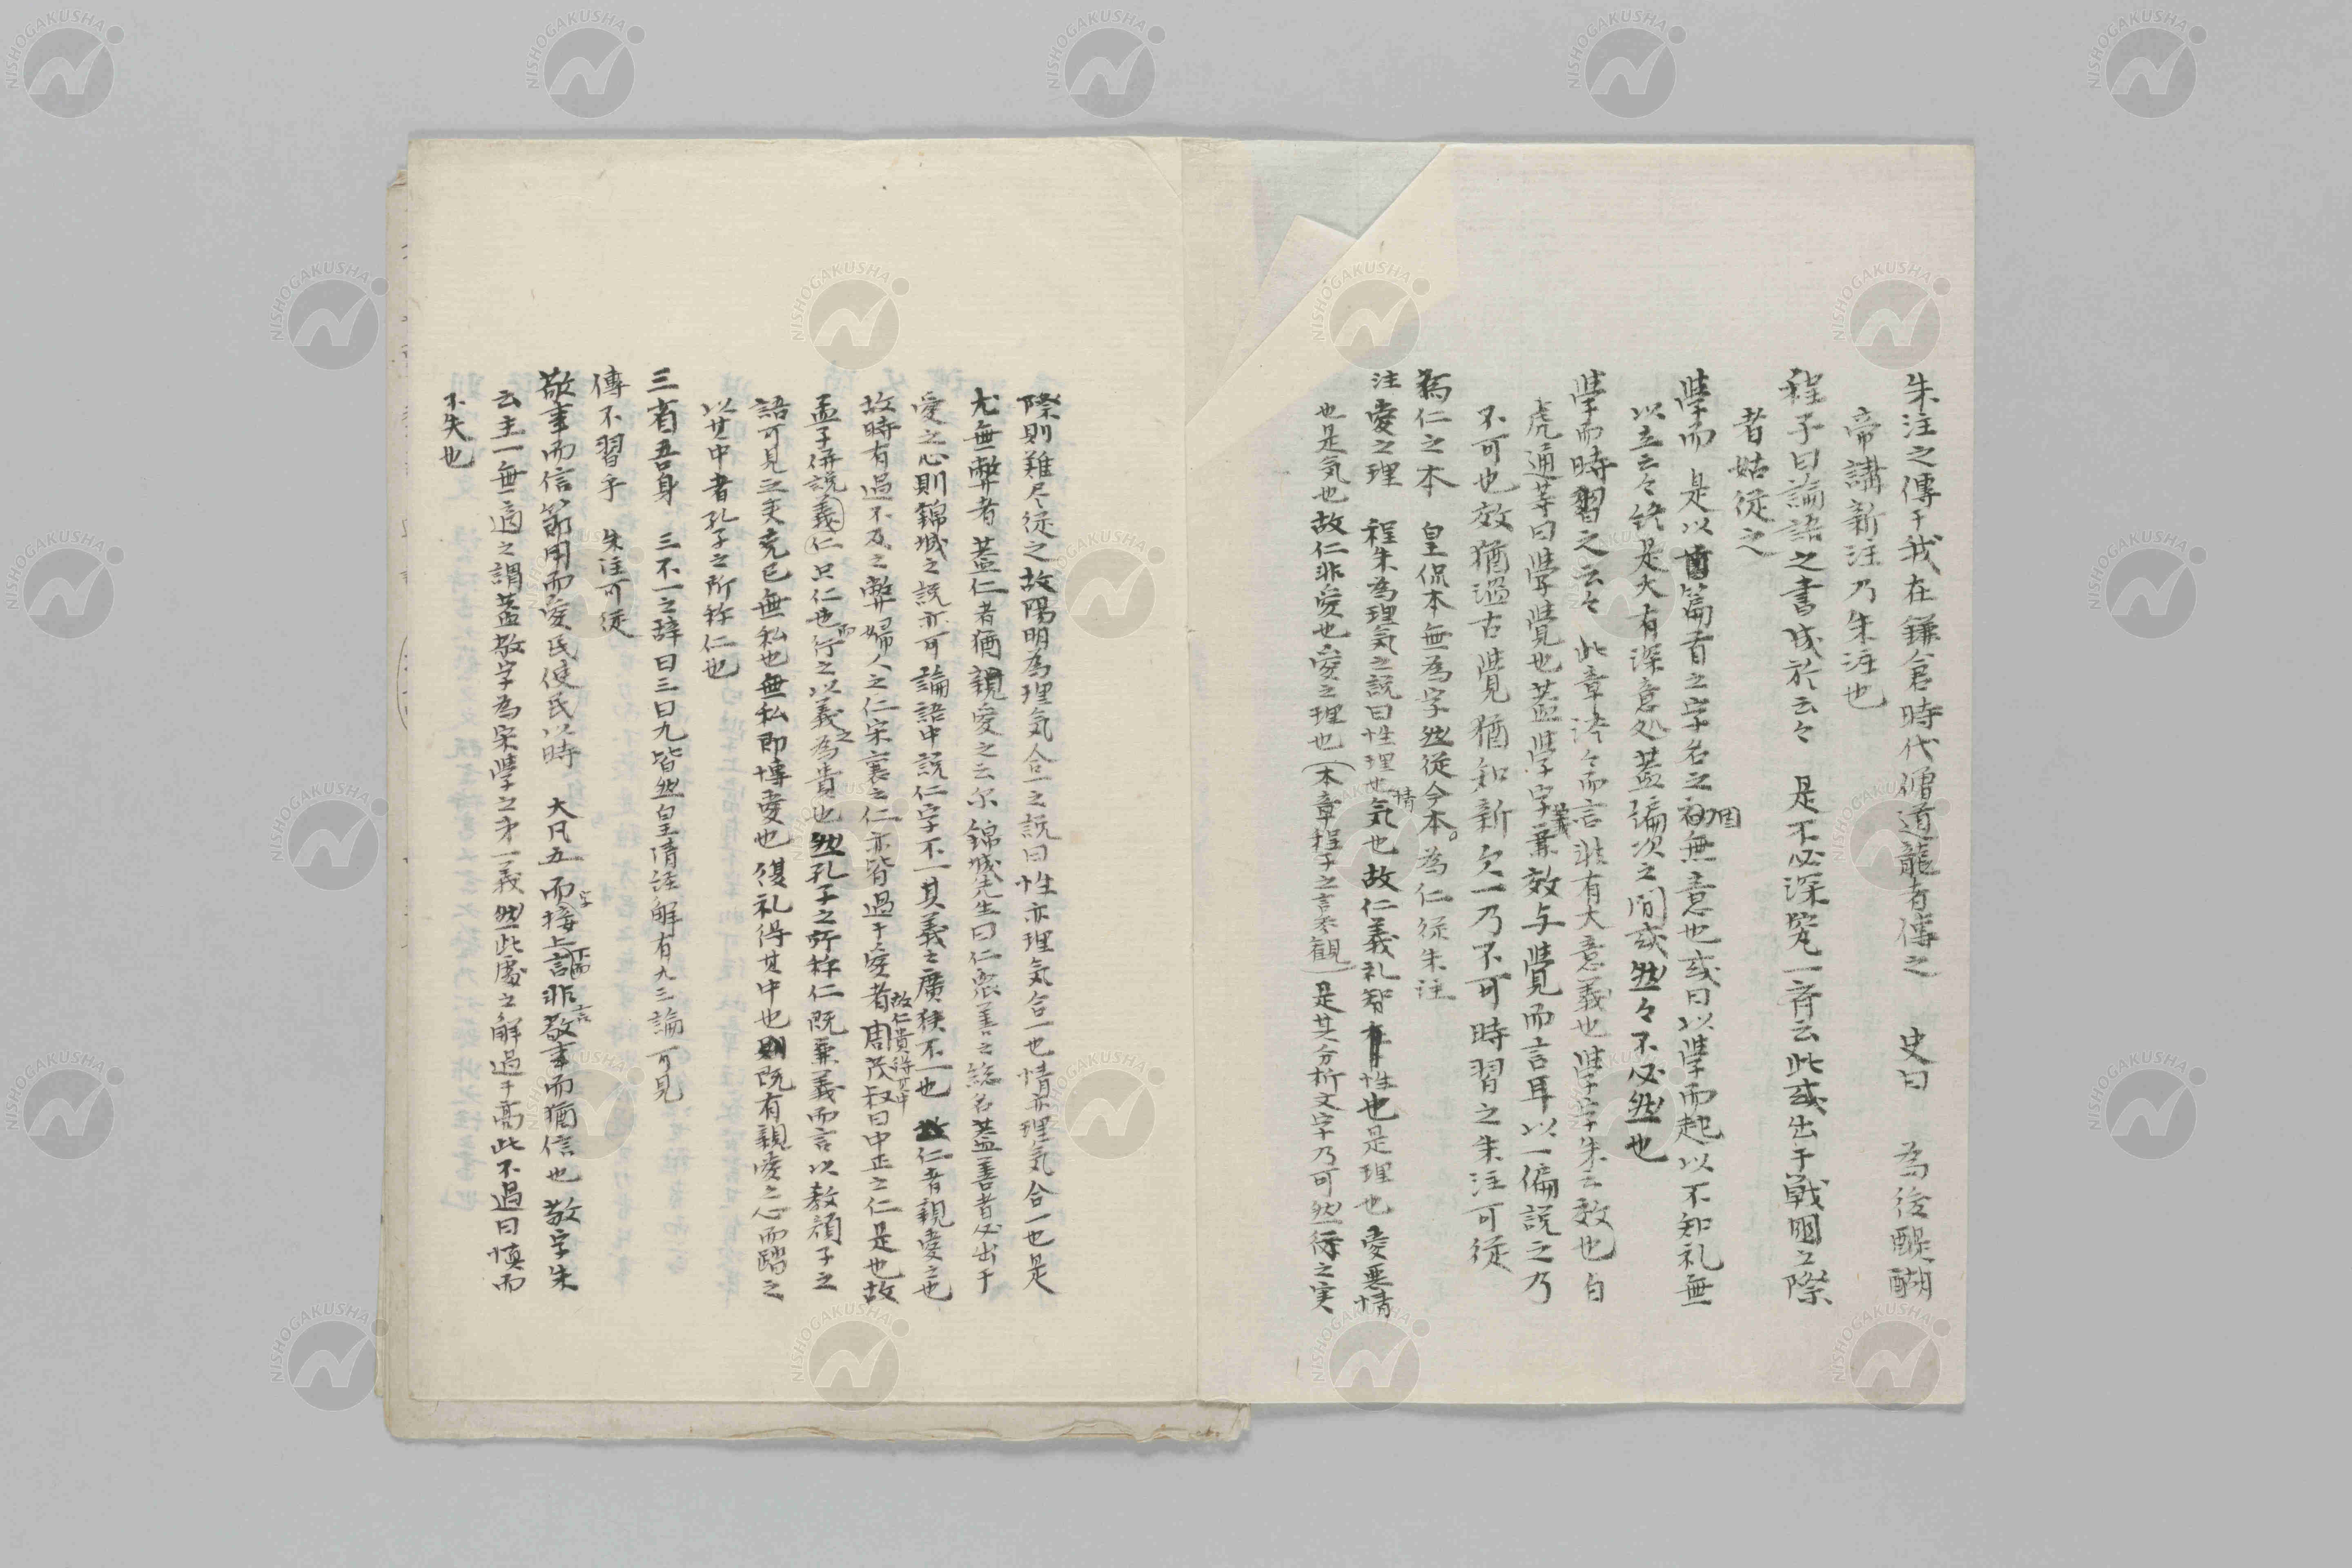 朱注之傳于我在鎌倉時代僧道龍者傳之 史曰 為後醍醐
帝講新注乃朱注也
程子曰論語之書成於云々 是不必深究一斉云此或出于戦国之際
者姑従之
學而 是以首篇首之字名之初無意也或曰以學而起以不知礼無
以立云々終是大有深意処蓋編次之間或然々不必然也
學而時習之云々 此章泛々而言非有大意義也學字朱云效也白
虎通等曰學覺也蓋學字兼效与覺而言耳以一偏説之乃
不可也效猶温古覺猶知新欠一乃不可時習之朱注可従
為仁之本 皇侃本無為字然従今本。為仁従朱注
注愛之理 程朱為理気之説曰性理也情気也故仁義礼智性也是理也愛悪情
也是気也故仁非愛也愛之理也(本章程子之言参観)是其分析文字乃可然行之実
際則難尽従之故陽明為理気合一之説曰性亦理気合一也情亦理気合一也是
尤無弊者蓋仁者猶親愛之云尓錦城先生曰仁衆善之総名蓋善者必出于
愛之心則錦城之説亦可論語中説仁字不一其義之廣狭不一也故仁者親愛之也
故時有過不及之弊婦人之仁宋襄之仁亦皆過于愛者故仁貴得其中周茂叔曰中正之仁是也故
孟子併説義仁只仁也而行之以義之為貴也然孔子之所称仁既兼義而言以教顔子之
語可見之矣克己無私也無私即博愛也復礼得其中也則既有親愛之心而踏之
以其中者孔子之所称仁也
三省吾身 三不一之辞曰三曰九皆然皇清経解有九三論可見
傳不習乎 朱注可従
敬事而信節用而愛民使民以時 大凡五而字接上下而言言非敬事而猶信也敬字朱
云主一無適之謂蓋敬字為宋學之第一義然此處之解過于高此不過曰慎而
不失也